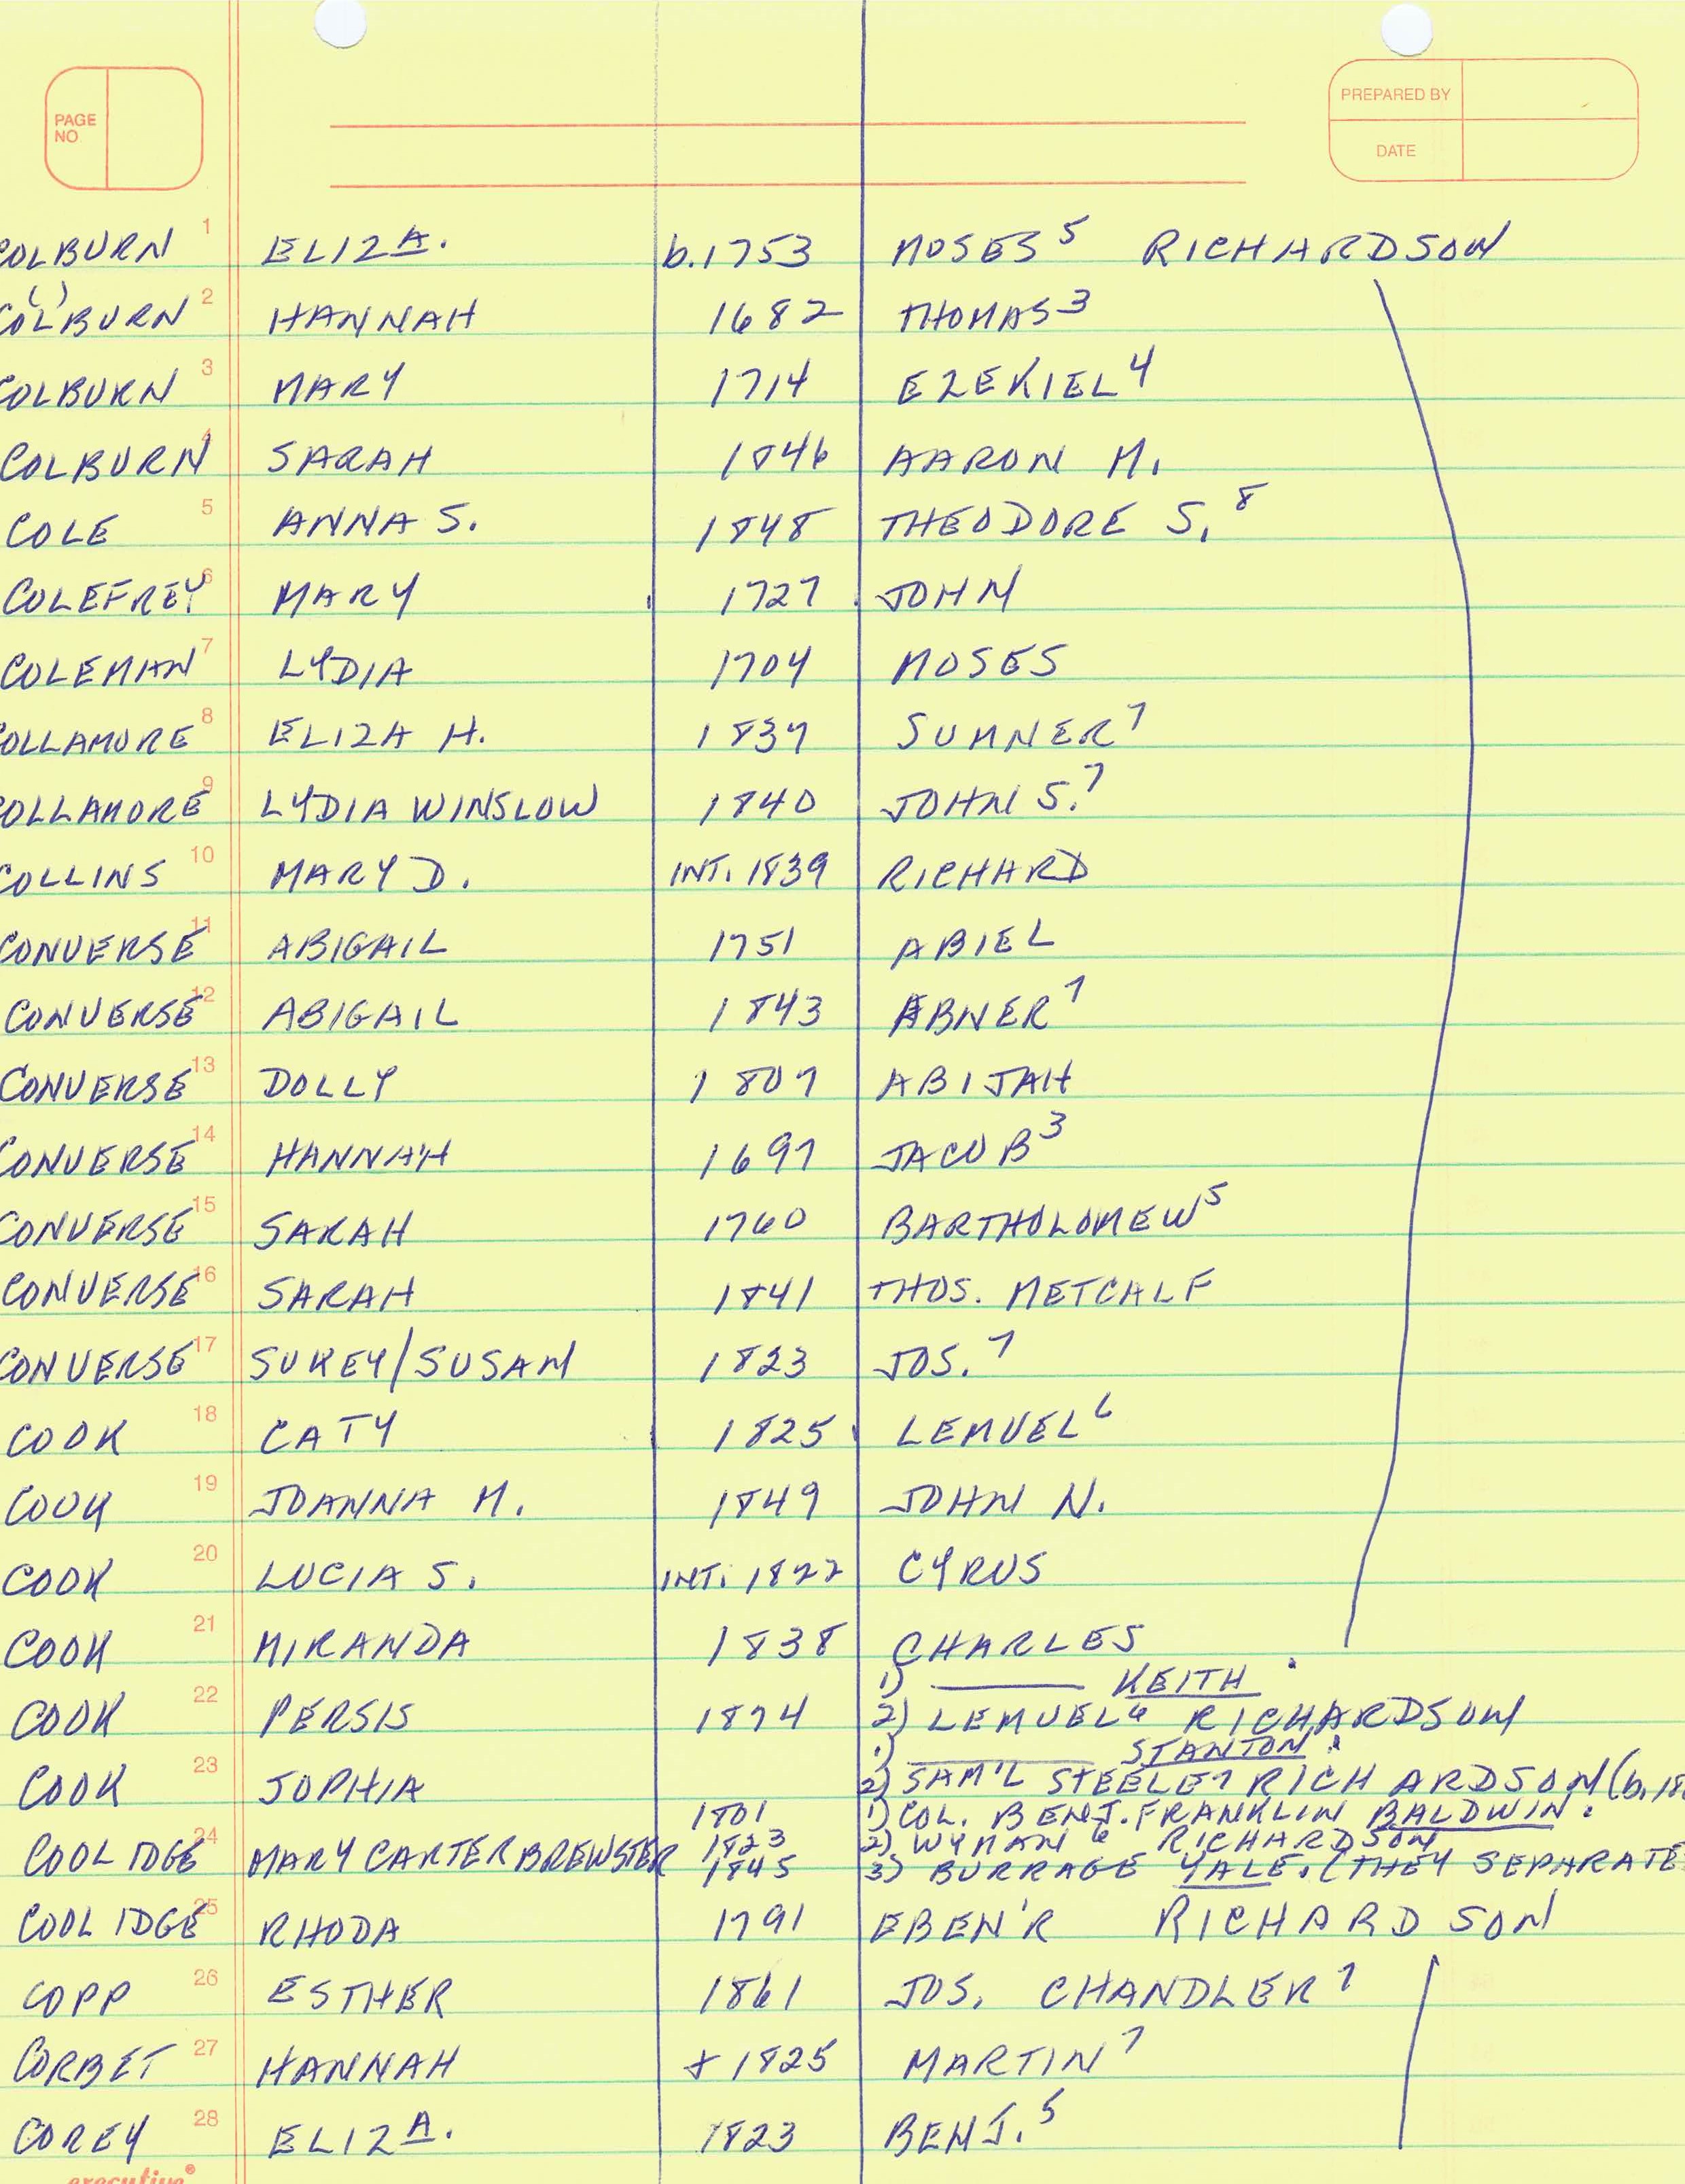 PAGE NO
PREPARED BY
DATE
OLBURN 1 ELIZA. b.1753 MOSES5 RICHARDSON
( )
COLBURN 2 HANNAH 1682 THOMAS3
OLBURN 3 MARY 1714 EZEKIEL4
COLBURN 4 SARAH 1846 AARON M.
COLE 5 ANNA S. 1848 THEODORE S.8
COLEFREY 6 MARY 1727 JOHN
COLEMAN 7 LYDIA 1704 MOSES
OLLAMORE 8 ELIZA H. 1837 SUMNER7
OLLAMORE 9 LYDIA WINSLOW 1840 JOHN S.7
COLLINS 10 MARY D. INT. 1839 RICHARD
CONVERSE 11 ABIGAIL 1751 ABIEL
CONVERSE 12 ABIGAIL 1843 ABNER7
CONVERSE 13 DOLLY 1807 ABIJAH
CONVERSE 14 HANNAH 1697 JACOB3
CONVERSE 15 SARAH 1760 BARTHOLOMEW5
CONVERSE 16 SARAH 1841 THOS. METCALF
CONVERSE 17 SUKEY/SUSAN 1823 JOS.7
COOK 18 CATY 1825 LEMUEL6
COOK 19 JOANNA M. 1849 JOHN N.
COOK 20 LUCIA S. INT. 1827 CYRUS
COOK 21 MIRANDA 1838 CHARLES
1) ——— KEITH.
COOK 22 PERSIS 1874 2) LEMUEL6 RICHARDSON
1) ——— STANTON.
COOK 23 SOPHIA 2) SAM'L STEELE7 RICHARDSON (b.18
1801 1) COL. BENJ. FRANKLIN BALDWIN.
COOLIDGE 24 MARY CARTER BREWSTER 1823 2) WYMAN6 RICHARDSON
1845 3) BURRAGE YALE. (THEY SEPARATE
COOLIDGE 25 RHODA 1791 EBEN'R RICHARDSON
COPP 26 ESTHER 1861 JOS. CHANDLER7
CORBET 27 HANNAH + 1825 MARTIN7
COREY 28 ELIZA. 1823 BENJ.5
executive®